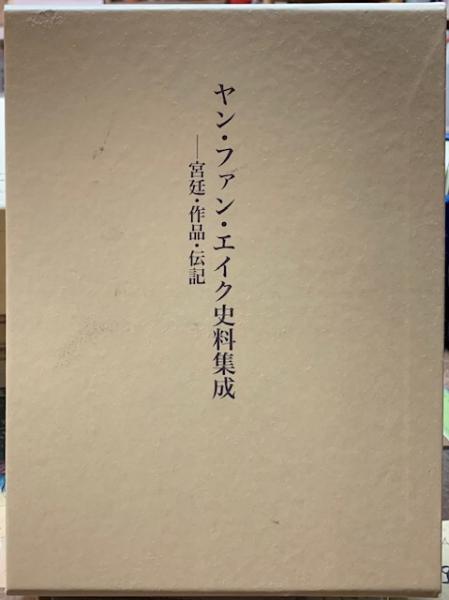 ヤン・ファン・エイク史料集成
――宮廷・作品・伝記